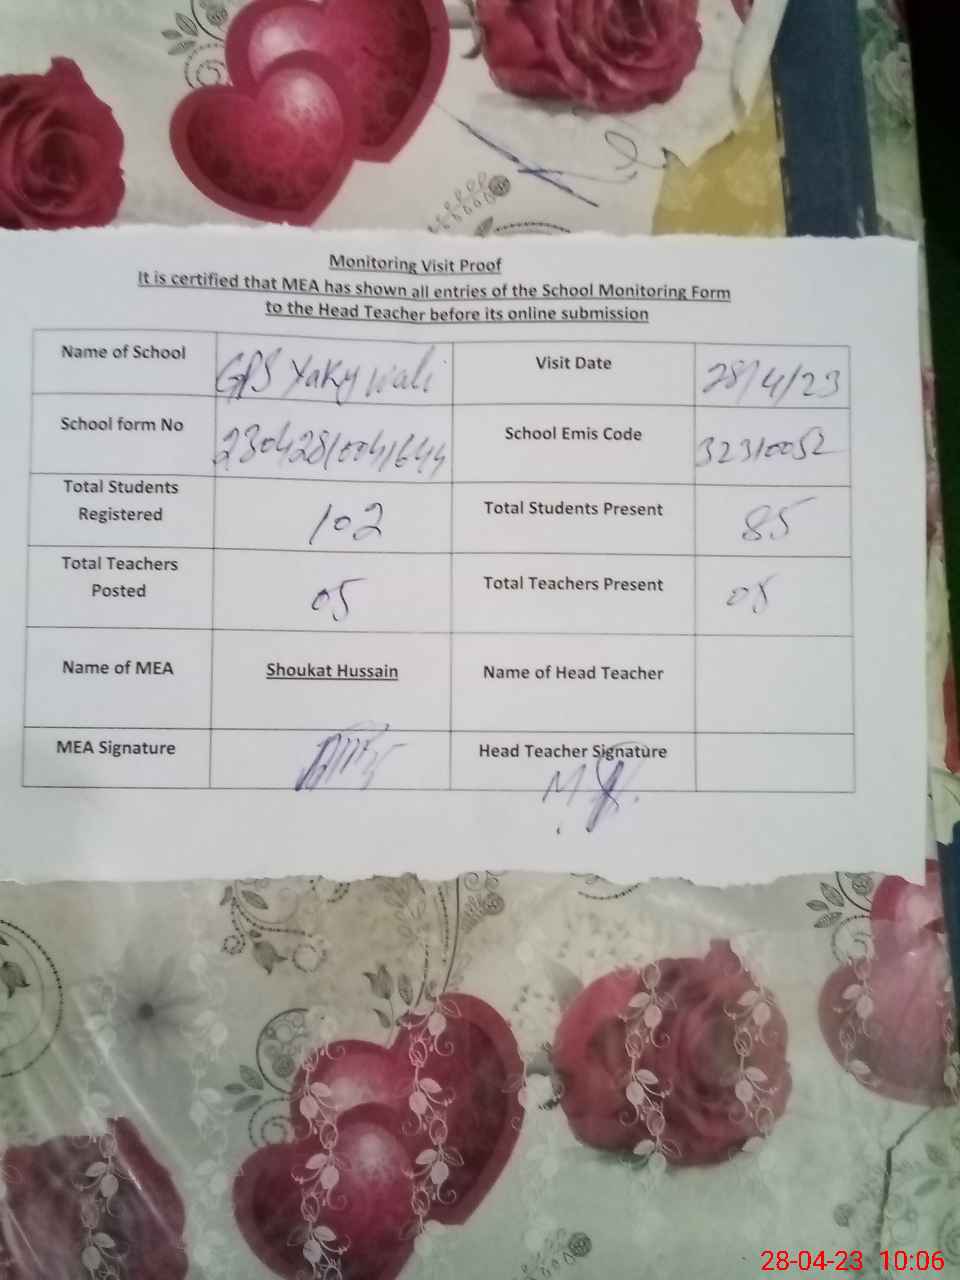 Monitoring Visit Proof
It is certified that MEA has shown all entries of the School Monitoring Form
to the Head Teacher before its online submission
Name of School GPS Yaky wali Visit Date 28/4/23
School form No School Emis Code 32310052
Total Students Registered 102 Total Students Present 85
Total Teachers Posted 05 Total Teachers Present 05
Name of MEA Shoukat Hussain Name of Head Teacher
MEA Signature Head Teacher Signature
28-04-23 10:06